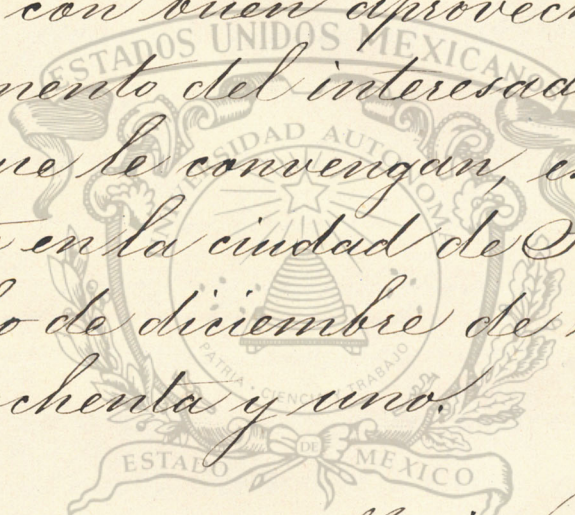 con buen aprovech
ESTADOS UNIDOS MEXICANOS
mento del interesad
UNIVERSIDAD AUTONOM
ue le convengan, e
en la ciudad de
o de diciembre de
PATRIA · CIENCIA Y TRABAJO
chenta y uno.
DE
ESTADO MEXICO